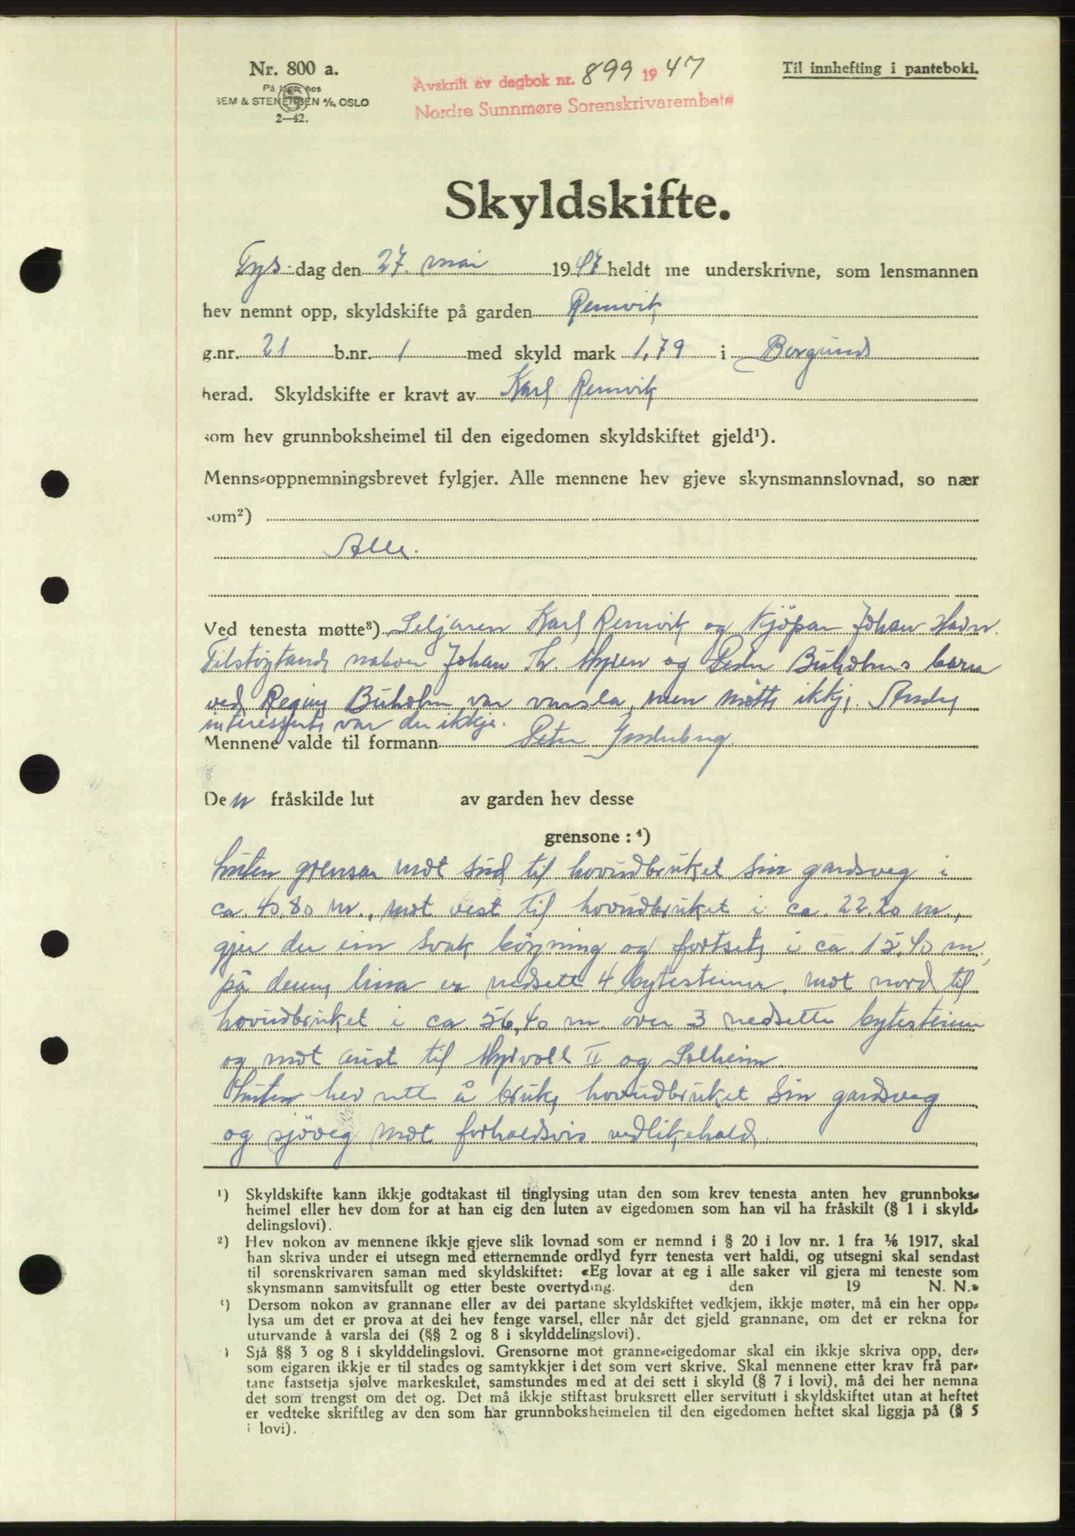 Nr. 800 a.
På lager hos
SEM & STENERSEN A/S, OSLO
2—42.
Avskrift av dagbok nr. 899 1947
Nordre Sunnmøre Sorenskrivarembete
Til innhefting i panteboki.
Skyldskifte.
Tys-dag den 27. mai 1947 heldt me underskrivne, som lensmannen
hev nemnt opp, skyldskifte på garden Remvik
g.nr. 21 b.nr. 1 med skyld mark 1,79 i Borgund
herad. Skyldskifte er kravt av Karl Remvik
som hev grunnboksheimel til den eigedomen skyldskiftet gjeld¹).
Menns-oppnemningsbrevet fylgjer. Alle mennene hev gjeve skynsmannslovnad, so nær
som²)
Alle.
Ved tenesta møtte³) Seljaren Karl Remvik og kjöpar Johan Havn.
Tilstøytande naboer Johan Th. Myren og Peder Buholms barn
ved Regine Buholm var varsla, men møtte ikkje. Andre
interessente var der ikkje.
Mennene valde til formann Peter
Den fråskilde lut av garden hev desse
grensone : ⁴)
Luten grensar mot sud til hovudbruket sin gardsveg i
ca. 40.80 m., mot vest til hovudbruket i ca. 22.20 m.,
gjer der ein svak böygning og fortset i ca. 15,40 m.,
på denne lina er nedsett 4 bytesteiner, mot nord til
hovudbruket i ca. 56,40 m over 3 nedsette bytesteiner
og mot aust til Myrvoll II og Solheim.
Luten hev rett å bruke hovudbruket sin gardsveg
og sjöveg mot forholdsvis vedlikehald.
¹) Skyldskifte kann ikkje godtakast til tinglysing utan den som krev tenesta anten hev grunnboks-
heimel eller hev dom for at han eig den luten av eigedomen som han vil ha fråskilt (§ 1 i skyld-
delingslovi).
²) Hev nokon av mennene ikkje gjeve slik lovnad som er nemnd i § 20 i lov nr. 1 fra 1/6 1917, skal
han skriva under ei utsegn med etternemnde ordlyd fyrr tenesta vert haldi, og utsegni skal sendast
til sorenskrivaren saman med skyldskiftet: «Eg lovar at eg i alle saker vil gjera mi teneste som
skynsmann samvitsfullt og etter beste overtyding. den 19 N. N.»
³) Dersom nokon av grannane eller av dei partane skyldskiftet vedkjem, ikkje møter, må ein her opp-
lysa um det er prova at dei hev fenge varsel, eller når det gjeld grannane, om det er rekna for
uturvande å varsla dei (§§ 2 og 8 i skylddelingslovi).
) Sjå §§ 3 og 8 i skylddelingslovi. Grensorne mot granne-eigedomar skal ein ikkje skriva opp, der-
som eigaren ikkje er til stades og samtykkjer i det som vert skrive. Skal mennene etter krav frå par-
tane fastsetja sjølve markeskilet, samstundes med at dei sett i skyld (§ 7 i lovi), må dei her nemna
det som trengst om det og. Det må ikkje stiftast bruksrett eller servitutt i skyldskiftet utan at heftet
er vedteke skriftleg av den som har grunnboksheimelen til den eigedomen heftet skal liggja på (§ 5
i lovi).